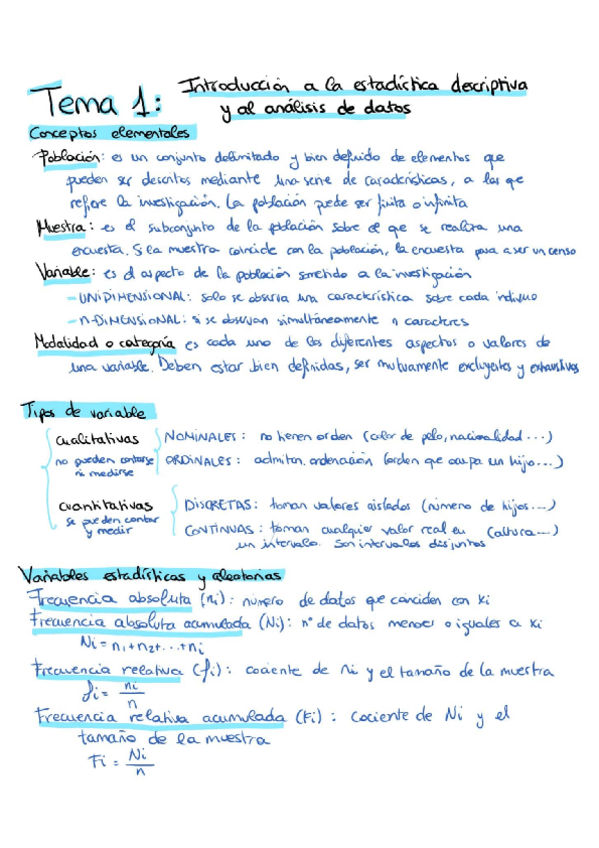 Tema 1: Introducción a la estadística descriptiva
y al análisis de datos
Conceptos elementales
Población: es un conjunto delimitado y bien definido de elementos que
pueden ser descritos mediante una serie de características, a las que
refiere la investigación. La población puede ser finita o infinita
Muestra: es el subconjunto de la población sobre el que se realiza una
encuesta. Si la muestra coincide con la población, la encuesta pasa a ser un censo
Variable: es el aspecto de la población sometido a la investigación
- UNIDIMENSIONAL: solo se observa una característica sobre cada individuo
- n-DIMENSIONAL: si se observan simultáneamente n caracteres
Modalidad o categoría es cada uno de los diferentes aspectos o valores de
una variable. Deben estar bien definidas, ser mutuamente excluyentes y exhaustivas
Tipos de variable
cualitativas
no pueden contarse
ni medirse
NOMINALES: no tienen orden (color de pelo, nacionalidad...)
ORDINALES: admiten ordenación (orden que ocupa un hijo...)
cuantitativas
se pueden contar
y medir
DISCRETAS: toman valores aislados (número de hijos...)
CONTINUAS: toman cualquier valor real en (altura...)
un intervalo. Son intervalos disjuntos
Variables estadísticas y aleatorias
Frecuencia absoluta (ni): número de datos que coinciden con xi
Frecuencia absoluta acumulada (Ni): nº de datos menores o iguales a xi
Ni = n1+n2+...+ni
Frecuencia relativa (fi): cociente de ni y el tamaño de la muestra
fi = ni/n
Frecuencia relativa acumulada (Fi): cociente de Ni y el
tamaño de la muestra
Fi = Ni/n